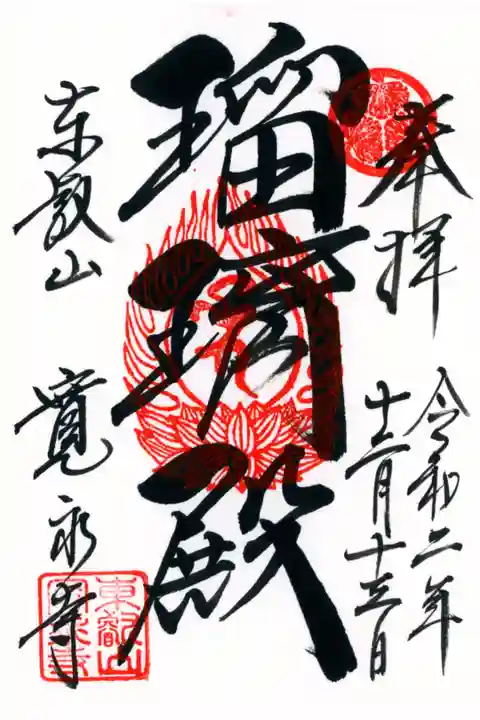 奉拝
令和二年
十二月十三日
瑠璃殿
東叡山 寛永寺
東叡山
寛永寺